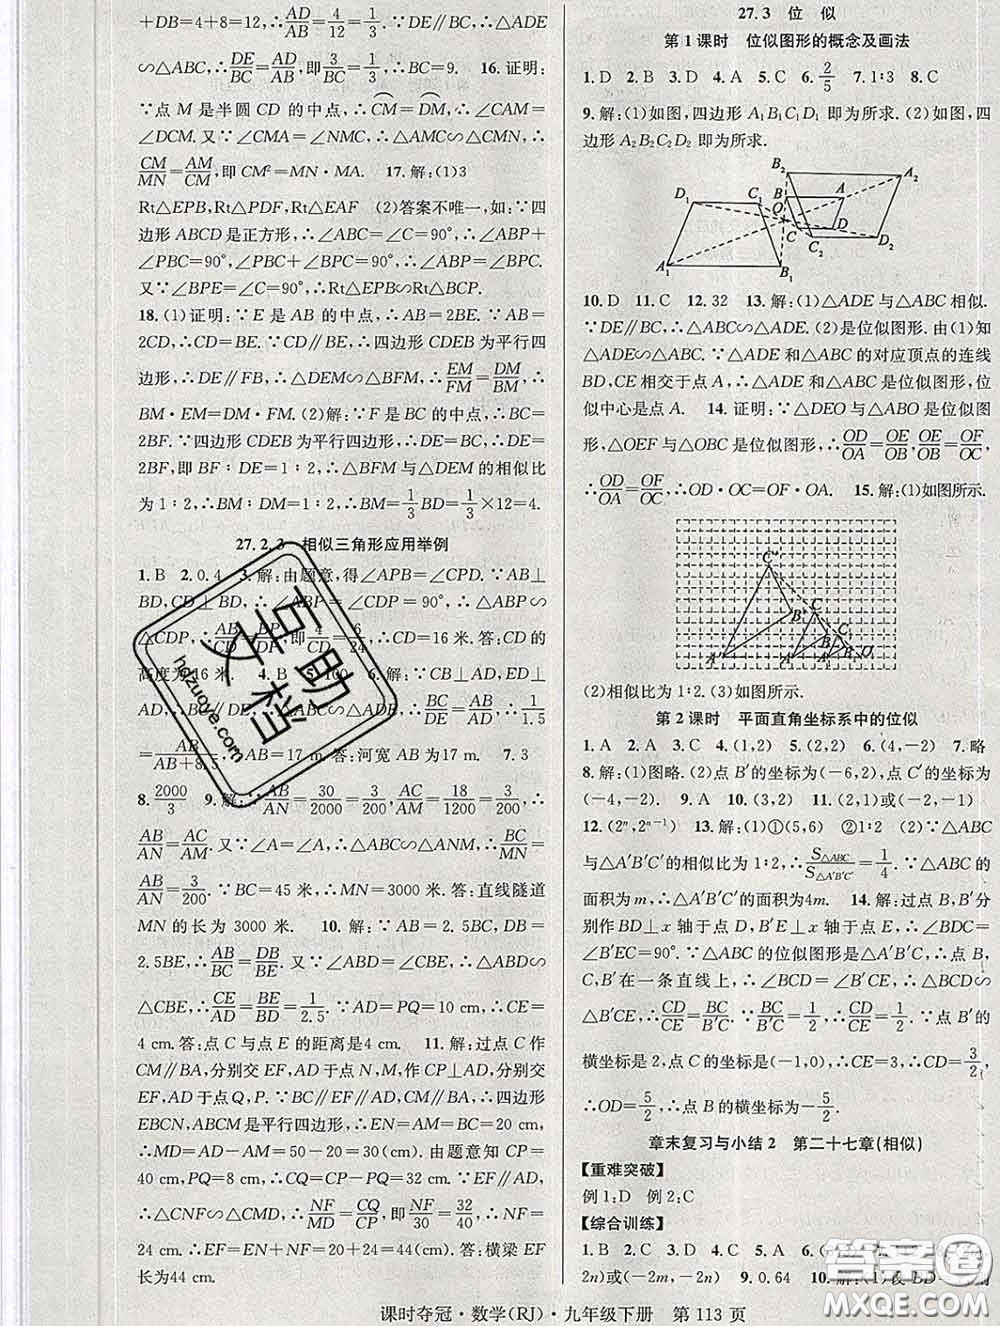 +DB=4+8=12,∴AD/AB=4/12=1/3. ∵DE∥BC,∴△ADE
∽△ABC,∴DE/BC=AD/AB,即3/BC=1/3,∴BC=9. 16. 证明:
∵点 M 是半圆 CD 的中点,∴CM=DM,∴∠CAM=
∠DCM. 又∵∠CMA=∠NMC,∴△AMC∽△CMN,∴
CM/MN=AM/CM,即 CM²=MN·MA. 17. 解:(1)3
Rt△EPB,Rt△PDF,Rt△EAF (2)答案不唯一,如:∵四
边形 ABCD 是正方形,∴∠ABC=∠C=90°,∴∠ABP+
∠PBC=90°,∠PBC+∠BPC=90°,∴∠ABP=∠BPC.
又∵∠BPE=∠C=90°,∴Rt△EPB∽Rt△BCP.
18. (1)证明:∵E 是 AB 的中点,∴AB=2BE. ∵AB=
2CD,∴CD=BE. ∵CD∥BE,∴四边形 CDEB 为平行四
边形,∴DE∥FB,∴△DEM∽△BFM,∴EM/FM=DM/BM,∴
BM·EM=DM·FM. (2)解:∵F 是 BC 的中点,∴BC=
2BF. ∵四边形 CDEB 为平行四边形,∴DE=BC=
2BF. 即 BF∶DE=1∶2,∴△BFM 与△DEM 的相似比
为 1∶2,∴BM∶DM=1∶2,∴BM=1/3BD=1/3×12=4.
27.2.3 相似三角形应用举例
1. B 2. 0.4 3. 解:由题意,得∠APB=∠CPD. ∵AB⊥
BD,CD⊥BD,∴∠ABP=∠CDP=90°,∴△ABP∽
△CDP,∴AB/CD=BP/DP,即4/CD=6/24,∴CD=16 米. 答:CD 的
高度为 16 米. 4. B 5. 100 6. 解:∵BC⊥AD,ED⊥AD,
∴BC∥DE,∴△ABC∽△ADE,∴BC/DE=AB/AD,∴1/1.5
=AB/(AB+8.5),∴AB=17 m. 答:河宽 AB 为 17 m. 7. 3
8. 2000/3 9. 解:∵AB/AN=30/2000=3/200,AC/AM=18/1200=3/200,∴
AB/AN=AC/AM. 又∵∠A=∠A,∴△ABC∽△ANM,∴BC/MN=
AB/AN=3/200. ∵BC=45 米,∴MN=3000 米. 答:直线隧道
MN 的长为 3000 米. 10. 解:∵AB=2.5BC,DB=
2.5BE,∴AB/BC=DB/BE. 又∵∠ABD=∠CBE,∴△ABD∽
△CBE,∴CE/AD=BE/BD=1/2.5. ∵AD=PQ=10 cm,∴CE=
4 cm. 答:点 C 与点 E 的距离是4 cm. 11. 解:过点 C 作
CM∥BA,分别交 EF,AD 于点 N,M,作 CP⊥AD,分别交
EF,AD 于点 Q,P. ∵CM∥BA,EF∥AD,∴四边形
EBCN,ABCM 是平行四边形,∴EN=AM=BC=20 cm,
∴MD=AD-AM=50-20=30(cm). 由题意知 CP=
40 cm,PQ=8 cm,∴CQ=CP-PQ=32 cm. ∵EF∥AD,
∴△CNF∽△CMD,∴NF/MD=CQ/CP,即NF/30=32/40,∴NF=
24 cm. ∴EF=EN+NF=20+24=44(cm). 答:横梁 EF
长为44 cm.
27.3 位 似
第 1 课时 位似图形的概念及画法
1. D 2. B 3. D 4. A 5. C 6. 2/5 7. 1∶3 8. C
9. 解:(1)如图,四边形 A₁B₁C₁D₁ 即为所求. (2)如图,四
边形 A₂B₂C₂D₂ 即为所求.
B₂ A₂
D₁ C₁ B A
O
C D
C₂ D₂
A₁ B₁
10. D 11. C 12. 32 13. 解:(1)△ADE 与△ABC 相似.
∵DE∥BC,∴△ABC∽△ADE. (2)是位似图形. 由(1)知
△ADE∽△ABC. ∵△ADE 和△ABC 的对应顶点的连线
BD,CE 相交于点 A,∴△ADE 和△ABC 是位似图形,位
似中心是点 A. 14. 证明:∵△DEO 与△ABO 是位似图
形,△OEF 与△OBC 是位似图形,∴OD/OA=OE/OB,OE/OB=OF/OC,
∴OD/OA=OF/OC,∴OD·OC=OF·OA. 15. 解:(1)如图所示.
(2)相似比为 1∶2. (3)如图所示.
第 2 课时 平面直角坐标系中的位似
1. A 2. A 3. C 4. (1,2) 5. (2,2) 6. (4,-2) 7. 略
8. 解:(1)图略. (2)点 B′的坐标为(-6,2),点 C′的坐标为
(-4,-2). 9. A 10. (3,2) 11. (2,1)或(-2,-1)
12. (2ⁿ,2ⁿ⁻¹) 13. 解:(1)①(5,6) ②1∶2 (2)∵△ABC
与△A′B′C′的相似比为 1∶2,∴S△ABC/S△A′B′C′=1/4. ∵△ABC 的
面积为 m,∴△A′B′C′的面积为4m. 14. 解:过点 B,B′分
别作 BD⊥x 轴于点 D,B′E⊥x 轴于点 E,∴∠BDC=
∠B′EC=90°. ∵△ABC 的位似图形是△A′B′C,∴点 B,
C,B′在一条直线上,∴∠BCD=∠B′CE,∴△BCD∽
△B′CE,∴CD/CE=BC/B′C. ∵BC/B′C=1/2,∴CD/CE=1/2. ∵点 B′的
横坐标是 2,点 C 的坐标是(-1,0),∴CE=3,∴CD=3/2,
∴OD=5/2,∴点 B 的横坐标为-5/2.
章末复习与小结 2 第二十七章(相似)
【重难突破】
例 1:D 例 2:C
【综合训练】
1. B 2. C 3. D 4. A 5. C 6.
2n)或(-2m,-2n) 9. 0.64 10. 解:(1)
课时夺冠·数学(RJ)·九年级下册 第 113 页
互助文档
hdzuoye.com
答案圈
MXQE.COM